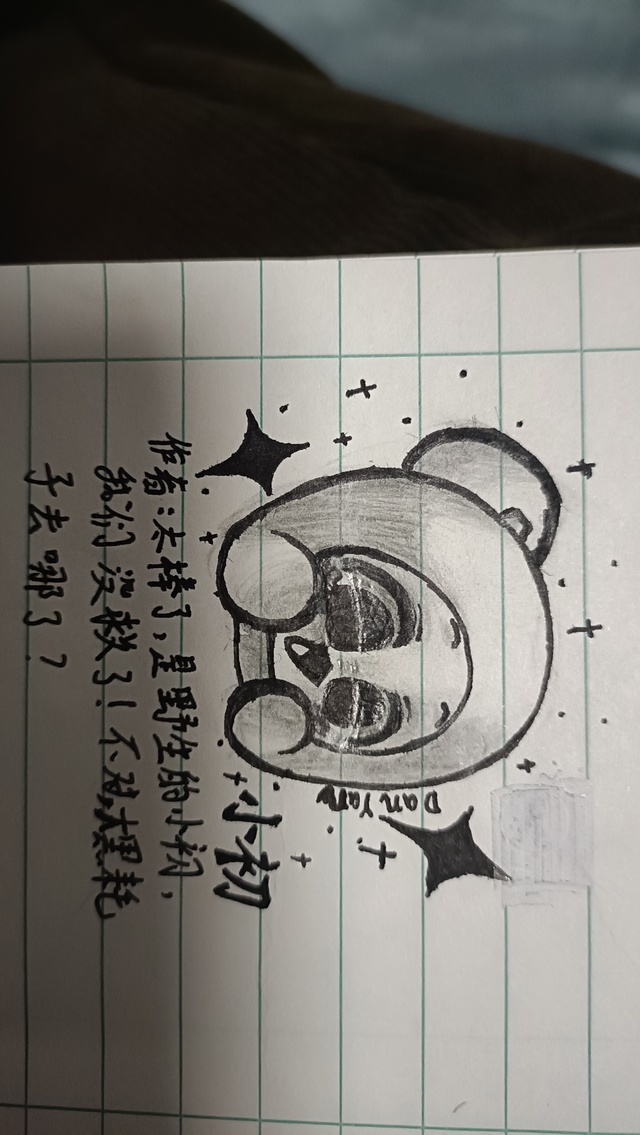 Dan Yang
小初
作者:太棒了,是野生的小初,
我们没救了!不对,大黑耗
子去哪了?